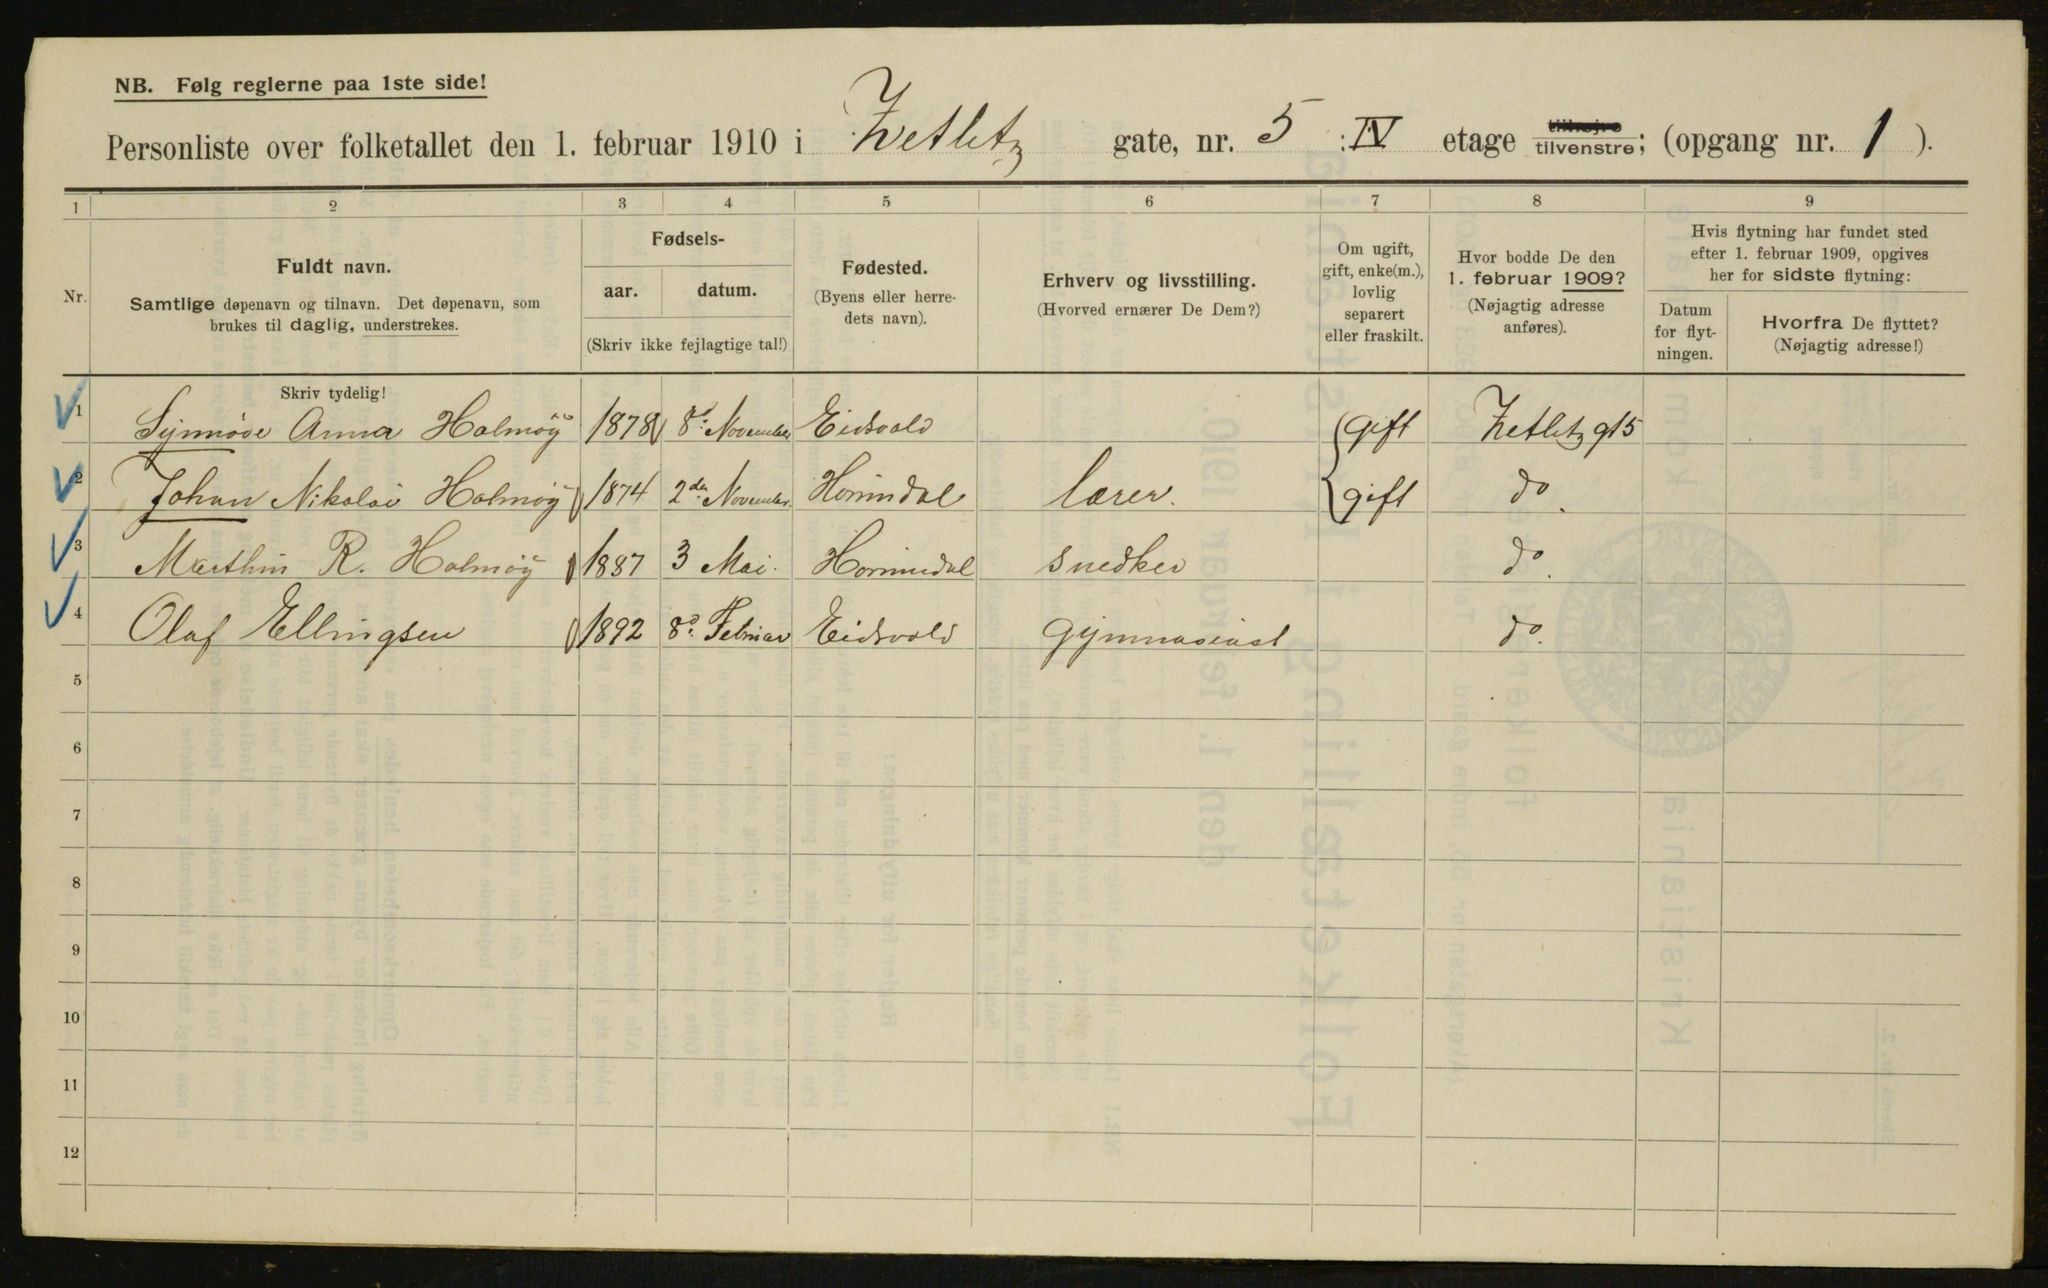 NB. Følg reglerne paa 1ste side!
Personliste over folketallet den 1. februar 1910 i Zetlitz gate, nr. 5 : IV etage tilhøjre tilvenstre; (opgang nr. 1 ).
1 2 3 4 5 6 7 8 9
Nr.
Fuldt navn.
Samtlige døpenavn og tilnavn. Det døpenavn, som
brukes til daglig, understrekes.
Fødsels-
aar. datum.
(Skriv ikke fejlagtige tal!)
Fødested.
(Byens eller herre-
dets navn).
Erhverv og livsstilling.
(Hvorved ernærer De Dem?)
Om ugift,
gift, enke(m.),
lovlig
separert
eller fraskilt.
Hvor bodde De den
1. februar 1909?
(Nøjagtig adresse
anføres).
Hvis flytning har fundet sted
efter 1. februar 1909, opgives
her for sidste flytning:
Datum
for flyt-
ningen.
Hvorfra De flyttet?
(Nøjagtig adresse!)
Skriv tydelig!
1 Synnøve Anna Holmøy 1878 8d. November Eidsvold gift Zetlitz gt 5
2 Johan Nikolai Holmøy 1874 2den November Hornindal lærer. gift do.
3 Marthin R. Holmøy 1887 3 Mai. Hornindal snedker do.
4 Olaf Ellingsen 1892 8d. Februar Eidsvold gymnasiast do.
5
6
7
8
9
10
11
12